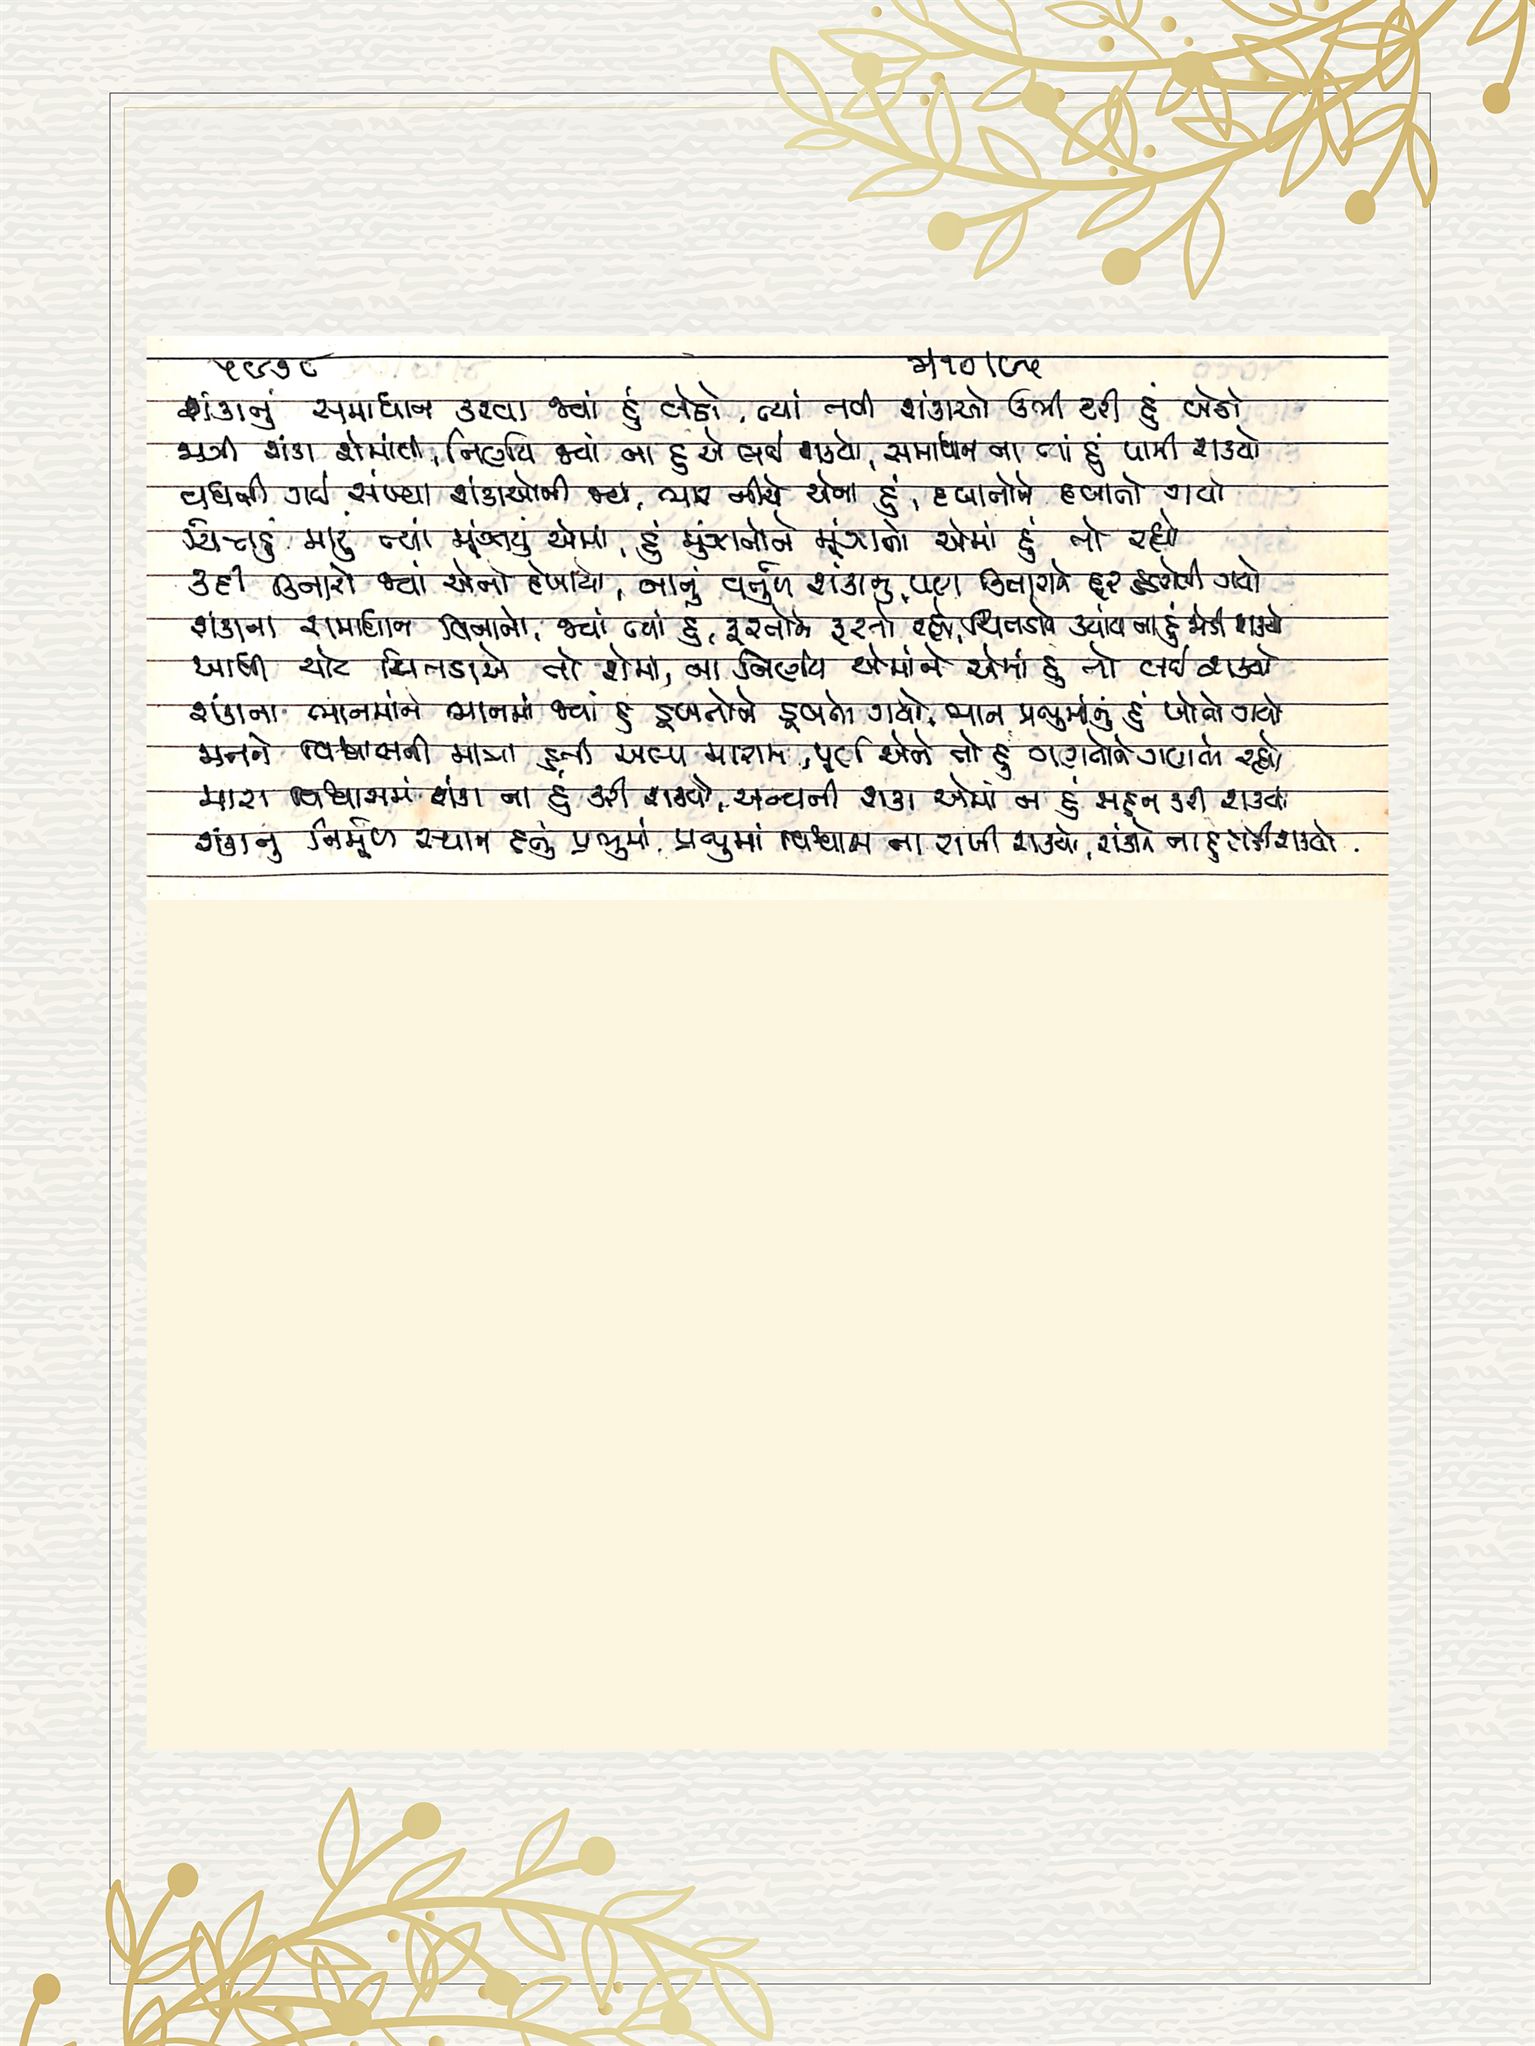 ૫૯૭૮
શંકાનું સમાધાન કરવા જ્યાં હું બેઠો, ત્યાં નવી શંકાઓ ઉભી કરી હું બેઠો
મળી શંકા શેમાંથી, નિર્ણય જ્યાં ના હું એ લઈ શક્યો, સમાધાન ના ત્યાં હું પામી શક્યો
વધતી ગઈ સંખ્યા શંકાઓની જ્યાં, ભાર નીચે એના હું, દબાતોને દબાતો ગયો
ચિત્તડું મારું ત્યાં મૂંઝાયું એમાં, હું મુંઝાતોને મૂંઝાતો એમાં હું તો રહ્યો
કદી કિનારો જ્યાં એનો દેખાયો, બાનું વર્તુળ શંકાનું, પણ કિનારાને દૂર હડસેલી ગયો
શંકાના સમાધાન વિનાનો, જ્યાં ત્યાં હું, ફરતોને ફરતો રહ્યો, ચિત્તડાને ક્યાંય ના હું જોડી શક્યો
આવી ચોટ ચિત્તડાએ તો શેમાં, ના નિર્ણય એમાંને એમાં હું તો લઈ શક્યો
શંકાના ભાનમાંને ભાનમાં જ્યાં હું ડૂબતોને ડૂબતો ગયો, ભાન પ્રભુમાંનું હું ખોતો ગયો
મનને વિશ્વાસની માત્રા હતી અલ્પ મારામાં, પૂર્ણ એને તો હું ગણતોને ગણતો રહ્યો
મારા વિશ્વાસમાં શંકા ના હું કરી શક્યો, અન્યની શંકા એમાં ન હું સહન કરી શક્યો
શંકાનું નિર્મૂળ સ્થાન હતું પ્રભુમાં, પ્રભુમાં વિશ્વાસ ના રાખી શક્યો, શંકાને ના હું તોડી શક્યો.